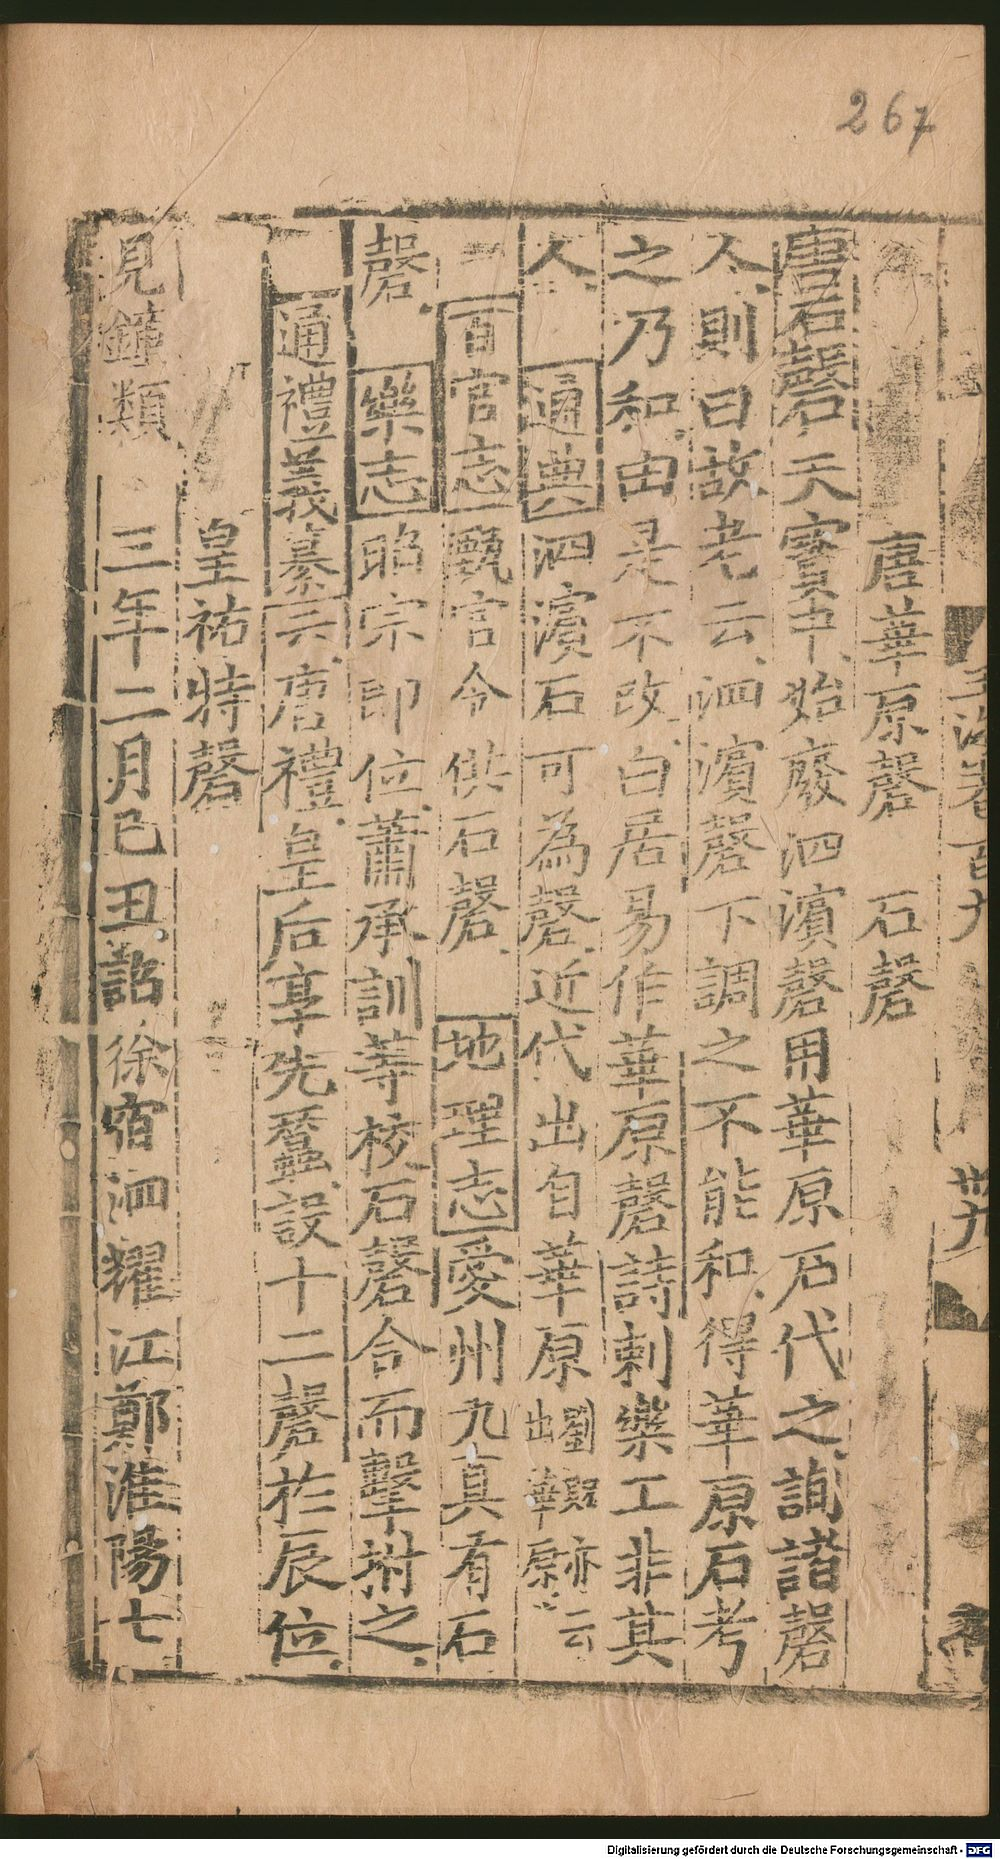 267
玉海卷百九 廿九
唐華原磬 石磬
唐石磬天寶中始廢泗濱磬用華原石代之詢諸磬
人則曰故老云泗濱磬下調之不能和得華原石考
之乃和由是不改白居易作華原磬詩刺樂工非其
人 通典泗濱石可為磬近代出自華原劉貺亦云出華原
百官志甄官令供石磬 地理志愛州九真有石
磬 樂志昭宗即位蕭承訓等校石磬合而擊拊之
通禮義纂云唐禮皇后享先蠶設十二磬於辰位
皇祐特磬
見鐘類 三年二月己丑詔徐宿泗耀江鄭淮陽七
Digitalisierung gefördert durch die Deutsche Forschungsgemeinschaft - DFG